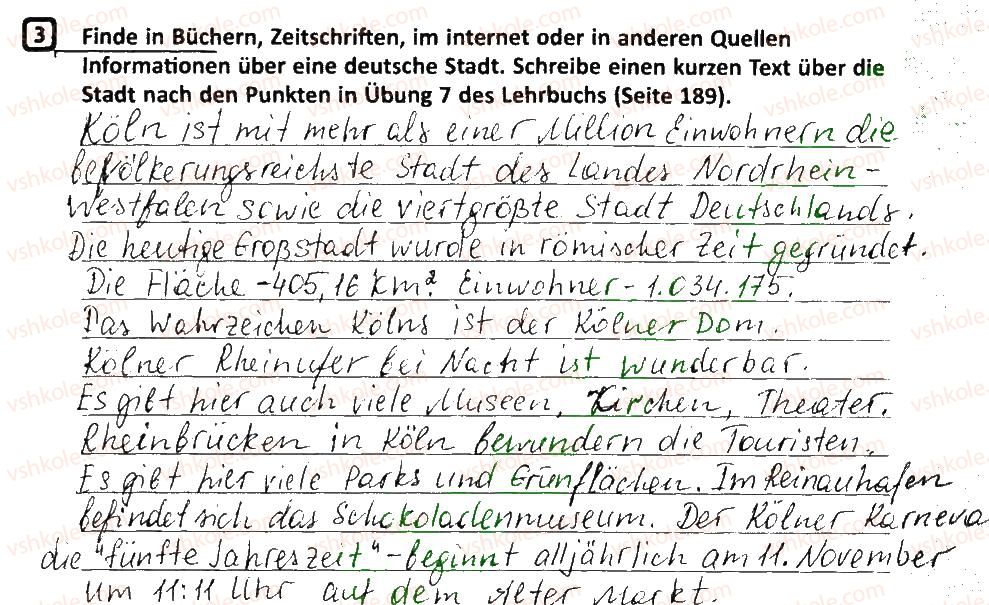 3 Finde in Büchern, Zeitschriften, im internet oder in anderen Quellen
Informationen über eine deutsche Stadt. Schreibe einen kurzen Text über die
Stadt nach den Punkten in Übung 7 des Lehrbuchs (Seite 189).
Köln ist mit mehr als einer Million Einwohnern die
bevölkerungsreichste Stadt des Landes Nordrhein-
Westfalen sowie die viertgrößte Stadt Deutschlands.
Die heutige Großstadt wurde in römischer Zeit gegründet.
Die Fläche - 405,16 km². Einwohner - 1.034.175.
Das Wahrzeichen Kölns ist der Kölner Dom.
Kölner Rheinufer bei Nacht ist wunderbar.
Es gibt hier auch viele Museen, Kirchen, Theater.
Rheinbrücken in Köln bewundern die Touristen.
Es gibt hier viele Parks und Grünflächen. Im Reinauhafen
befindet sich das Schokoladenmuseum. Der Kölner Karneva
die "fünfte Jahreszeit" - beginnt alljährlich am 11. November
um 11:11 Uhr auf dem Alter Markt.
vshkole.com